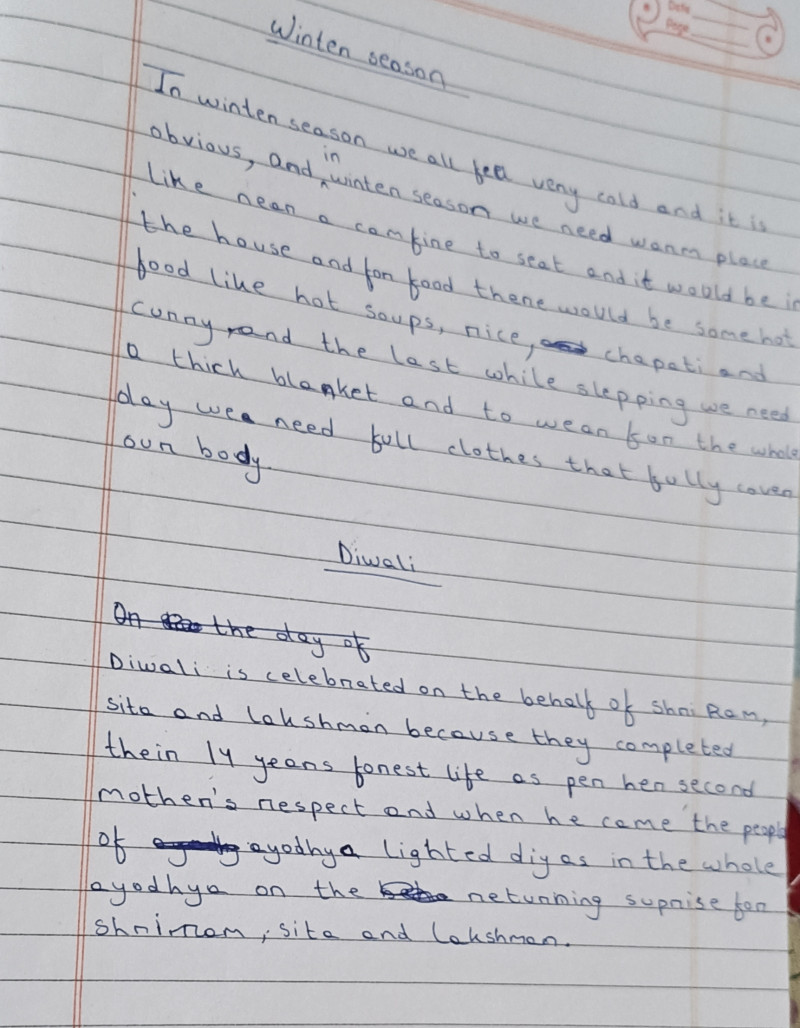 Date
Page
Winter season
In winter season we all feel very cold and it is
obvious, and in winter season we need warm place
like near a camfire to seat and it would be in
the house and for food there would be some hot
food like hot soups, rice, chapati and
curry, and the last while slepping we need
a thick blanket and to wear for the whole
day we need full clothes that fully cover
our body.
Diwali
On the day of
Diwali is celebrated on the behalf of Shri Ram,
sita and lakshman because they completed
their 14 years forest life as per her second
mother's respect and when he came the people
of ayodhya lighted diyas in the whole
ayodhya on the returning suprise for
shriram, sita and lakshman.